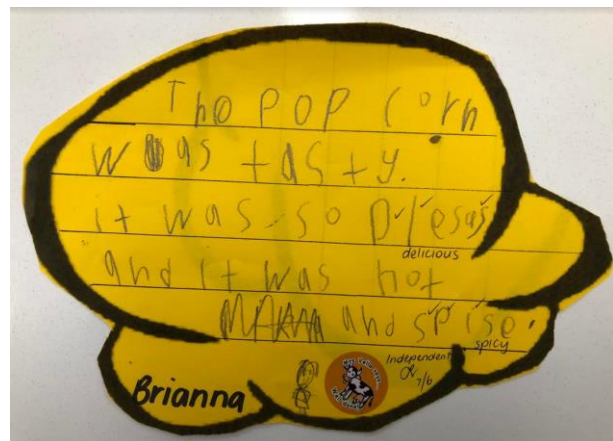 The pop corn
was tasty.
it was so dlesas
delicious
and it was hot
and spise.
spicy
Independent
7/6
Brianna